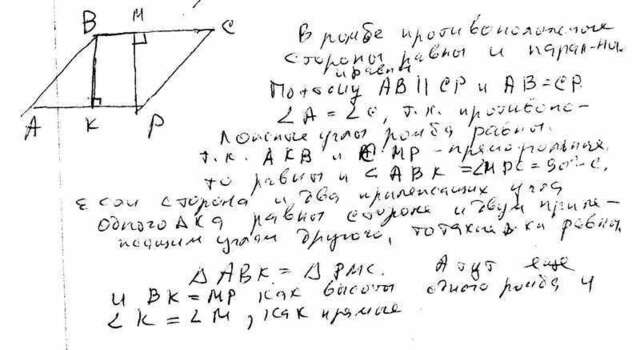 B M C
A K P
В ромбе противоположные
стороны равны и парал-ны.
и равны
Поэтому AB || CP и AB = CP
∠A = ∠C, т.к. противопо-
ложные углы ромба равны.
т.к. AKB и CMP - прямоугольные,
то равны и ∠ABK = ∠MPC = 90° - C.
Если сторона и два прилежащих угла
одного Δка равны стороне и двум приле-
жащим углам другого, то такие Δки равны.
ΔABK = ΔPMC. А тут еще
и BK = MP как высоты одного ромба и
∠K = ∠M, как прямые